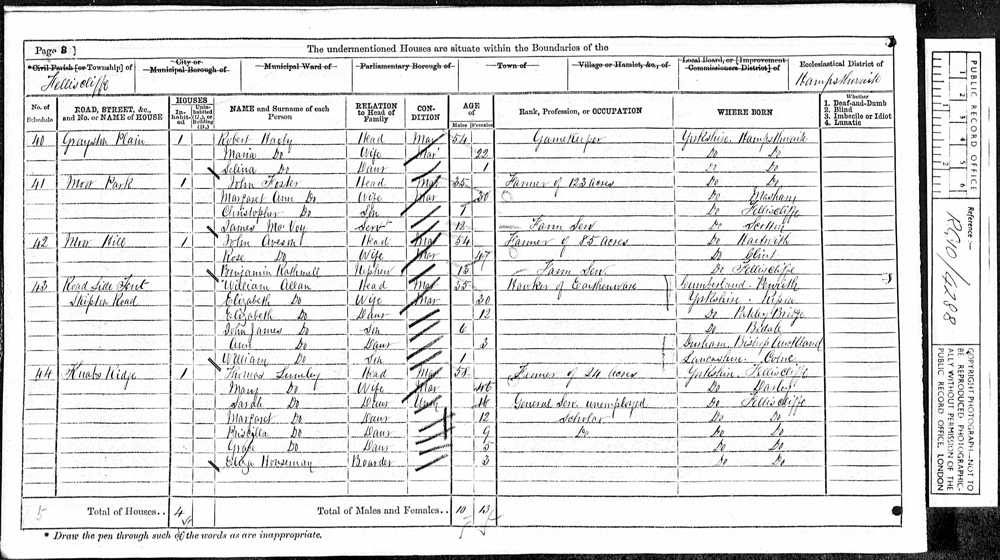 Page 8 ]
The undermentioned Houses are situate within the Boundaries of the
*Civil Parish [or Township] of
City or Municipal Borough of
Municipal Ward of
Parliamentary Borough of
Town of
Village or Hamlet, &c., of
Local Board, or [Improvement Commissioners District] of
Ecclesiastical District of
Felliscliffe
Hampsthwaite
No. of Schedule
ROAD, STREET, &c., and No. or NAME of HOUSE
HOUSES
Inhabited
Uninhabited (U.), or Building (B.)
NAME and Surname of each Person
RELATION to Head of Family
CONDITION
AGE of
Males
Females
Rank, Profession, or OCCUPATION
WHERE BORN
Whether
1. Deaf-and-Dumb
2. Blind
3. Imbecile or Idiot
4. Lunatic
40 Grayston Plain 1 Robert Head Mar 54 Gamekeeper Yorkshire Hampsthwaite
Maria Do Wife Mar 22 Do Do
Selina Do Daur 1 Do Do
41 Moor Park 1 John Foster Head Mar 35 Farmer of 123 acres Do Do
Margaret Ann Do Wife Mar 30 Do Masham
Christopher Do Son 7 Do Felliscliffe
James Mc Voy Serv 12 Farm Serv Do
42 Moor Hill 1 John Head Mar 54 Farmer of 85 acres Do
Rose Do Wife Mar 47 Do Clint
Benjamin Nephew 13 Farm Serv Do Felliscliffe
43 Road Side Tent 1 William Allan Head Mar 35 Hawker of Earthenware Cumberland Penrith
Skipton Road Elizabeth Do Wife Mar 30 Yorkshire Ripon
Elizabeth Do Daur 12 Do Bridge
John James Do Son 6 Do Bedale
Ann Do Daur 3 Durham Bishop Auckland
William Do Son 1 Lancashire Colne
44 Knabs Ridge 1 Thomas Head Mar 58 Farmer of 24 acres Yorkshire Felliscliffe
Mary Do Wife Mar 46 Do
Sarah Do Daur 16 General Serv unemployed Do Felliscliffe
Margaret Do Daur 12 Scholar Do Do
Priscilla Do Daur 9 Do Do Do
Grace Do Daur 5 Do Do
Eliza Houseman Boarder 3 Do Do
5 Total of Houses.. 4 Total of Males and Females.. 10 13
* Draw the pen through such of the words as are inappropriate.
PUBLIC RECORD OFFICE
1 2 3 4 5 6
Reference :-
RG10/4288
COPYRIGHT PHOTOGRAPH—NOT TO BE REPRODUCED PHOTOGRAPHICALLY WITHOUT PERMISSION OF THE PUBLIC RECORD OFFICE, LONDON